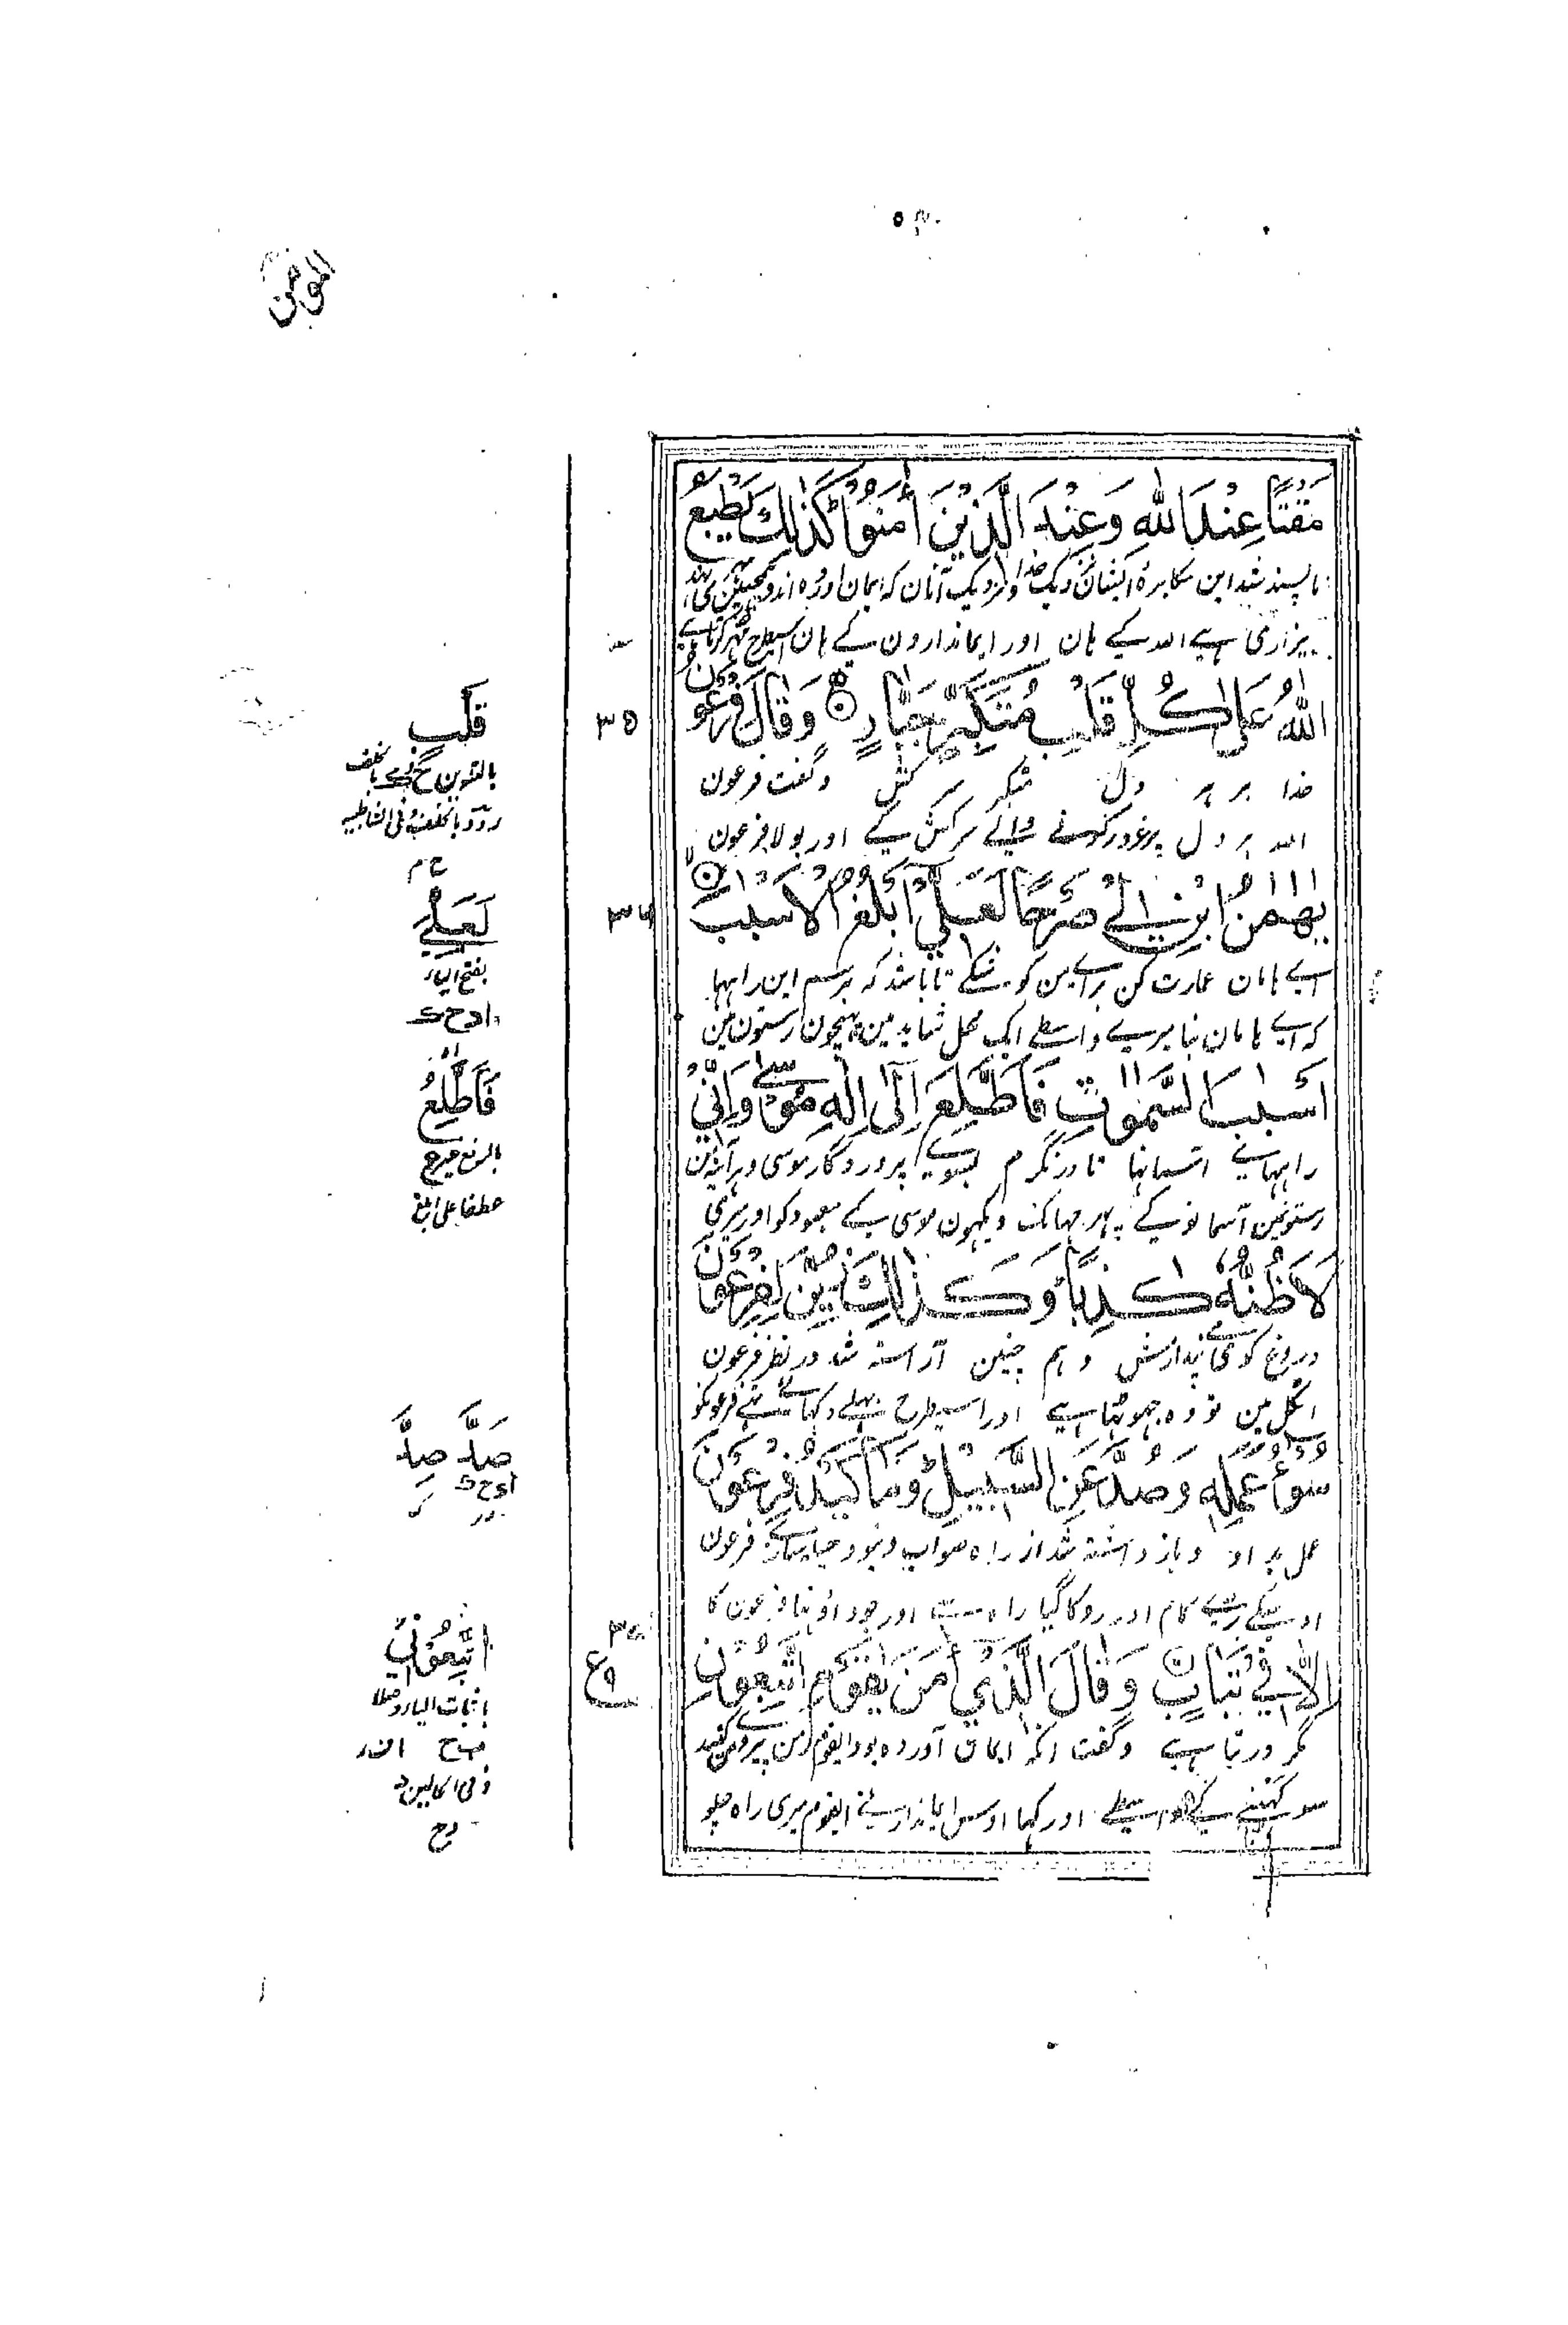 المؤمن
مَقْتًا عِنْدَ اللّٰهِ وَعِنْدَ الَّذِيْنَ اٰمَنُوْا ؕ كَذٰلِكَ يَطْبَعُ
ناپسند شد این مکابرۂ ایشان نزدیک خدا و نزدیک آنان که ایمان آورده اند و همچنین مهر می نهد
بیزاری ہے اللہ کے ہان اور ایماندارون کے ہان اسیطرح مہر کرتا ہے
اللّٰهُ عَلٰى كُلِّ قَلْبِ مُتَكَبِّرٍ جَبَّارٍ ۝ وَقَالَ فِرْعَوْنُ
۳۵
خدا بر ہر دل متکبر سرکش وگفت فرعون
اللہ ہر دل پر غرور کرنے والے سرکش کے اور بولا فرعون
يٰهٰمٰنُ ابْنِ لِيْ صَرْحًا لَّعَلِّيْ اَبْلُغُ الْاَسْبٰبَ ۝
۳۶
اے ہامان عمارت کن براے من کوشکے تا باشد کہ برسم این راہہا
کہ اے ہامان بنا میرے واسطے ایک محل شاید مین پہنچون رستون مین
اَسْبٰبَ السَّمٰوٰتِ فَاَطَّلِعَ اِلٰٓى اِلٰهِ مُوْسٰى وَاِنِّيْ
راہہائے آسمانہا تا درنگرم بسوے پروردگار موسی وہرآئینہ من
رستونمین آسمانونکے پہر جہانک دیکہون موسی کے معبود کو اور میری
لَاَظُنُّهٗ كٰذِبًا ؕ وَكَذٰلِكَ زُيِّنَ لِفِرْعَوْنَ
دروغ گو می پندارمش وہم چنین آراستہ شد در نظر فرعون
اٹکل مین تو وہ جہوٹہا ہے اور اسیطرح بہلے دکہائے تہے فرعونکو
سُوْٓءُ عَمَلِهٖ وَصُدَّ عَنِ السَّبِيْلِ ؕ وَمَا كَيْدُ فِرْعَوْنَ
عمل بد او وباز داشتہ شد از راہ صواب ونبود حیلہ سازی فرعون
اوسکے برے کام اور روکا گیا راہ سے اور جو داؤ تہا فرعون کا
اِلَّا فِيْ تَبَابٍ ۝ وَقَالَ الَّذِيْٓ اٰمَنَ يٰقَوْمِ اتَّبِعُوْنِ
۳۷
ع ۹
مگر در تباہی وگفت آنکہ ایمان آوردہ بود ایقوم من پیروی من کنید
سو کہپنے کے واسطے اور کہا اوس ایماندار نے ایقوم میری راہ چلو
قَلْبٍ
بالتنوین
لَعَلِّيَ
بفتح الیاء
فَاَطَّلِعُ
بالرفع
عطفا علی ابلغ
صَدَّ صِدَّ
اتَّبِعُوْنِيْ
باثبات الیاء وصلا
وفی الحالین